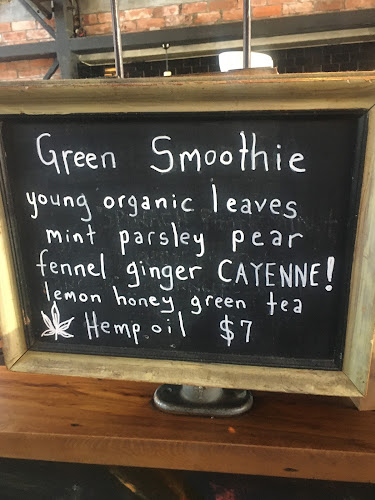 Green Smoothie
young organic leaves
mint parsley pear
fennel ginger CAYENNE!
lemon honey green tea
Hemp oil $7